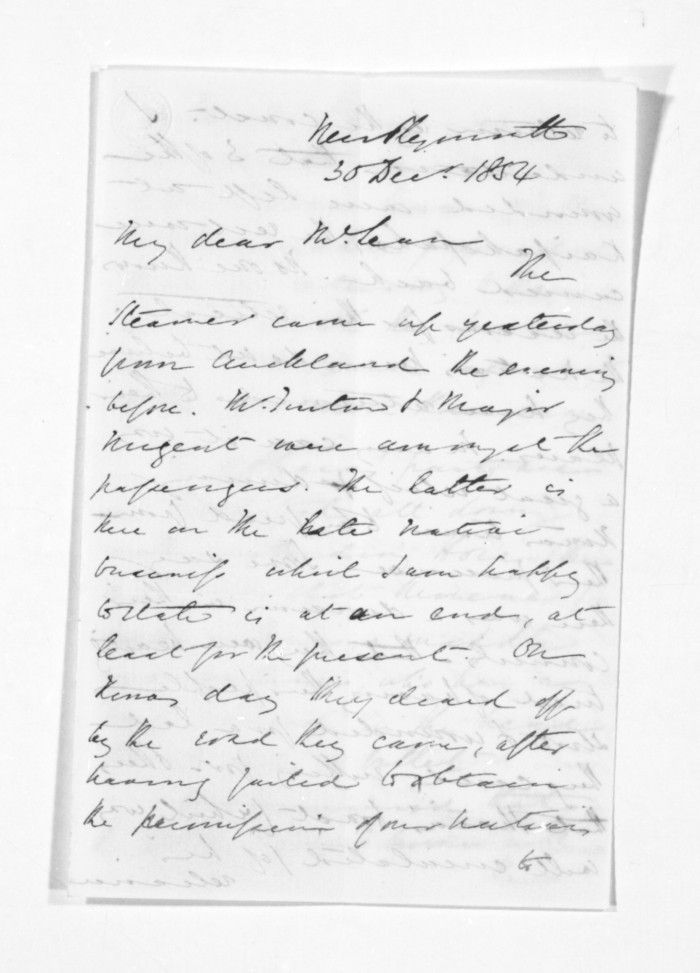 New Plymouth
30 Decr. 1854
My dear McLean
The
Steamer came up yesterday
from Auckland the evening
before. Mr. Turton & Major
Nugent were amongst the
passengers. The latter is
here on the late native
business which I am happy
to state is at an end, at
least for the present. On
Xmas day they cleared off
by the road they came, after
having failed to obtain
the permission of our natives
to